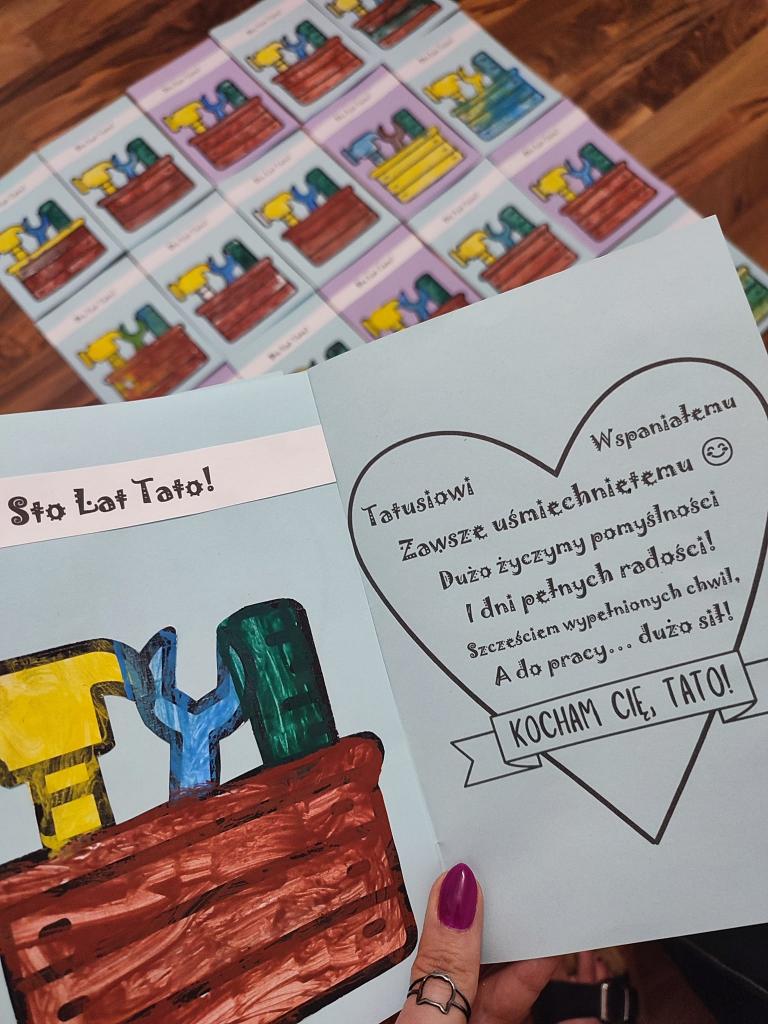 Sto Lat Tato!
Wspaniałemu
Tatusiowi
Zawsze uśmiechniętemu 😊
Dużo życzymy pomyślności
I dni pełnych radości!
Szczęściem wypełnionych chwil,
A do pracy... dużo sił!
KOCHAM CIĘ, TATO!